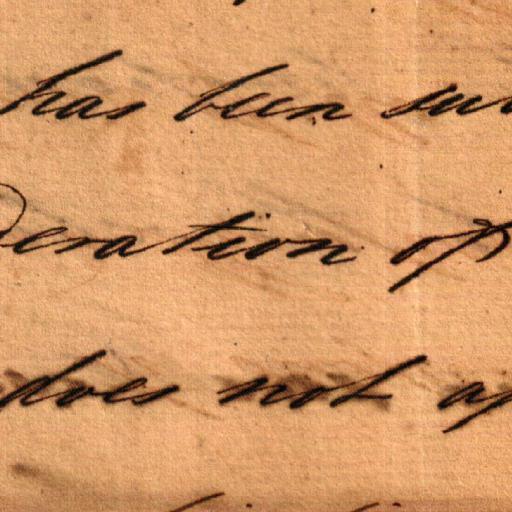 has been
deration of
does not